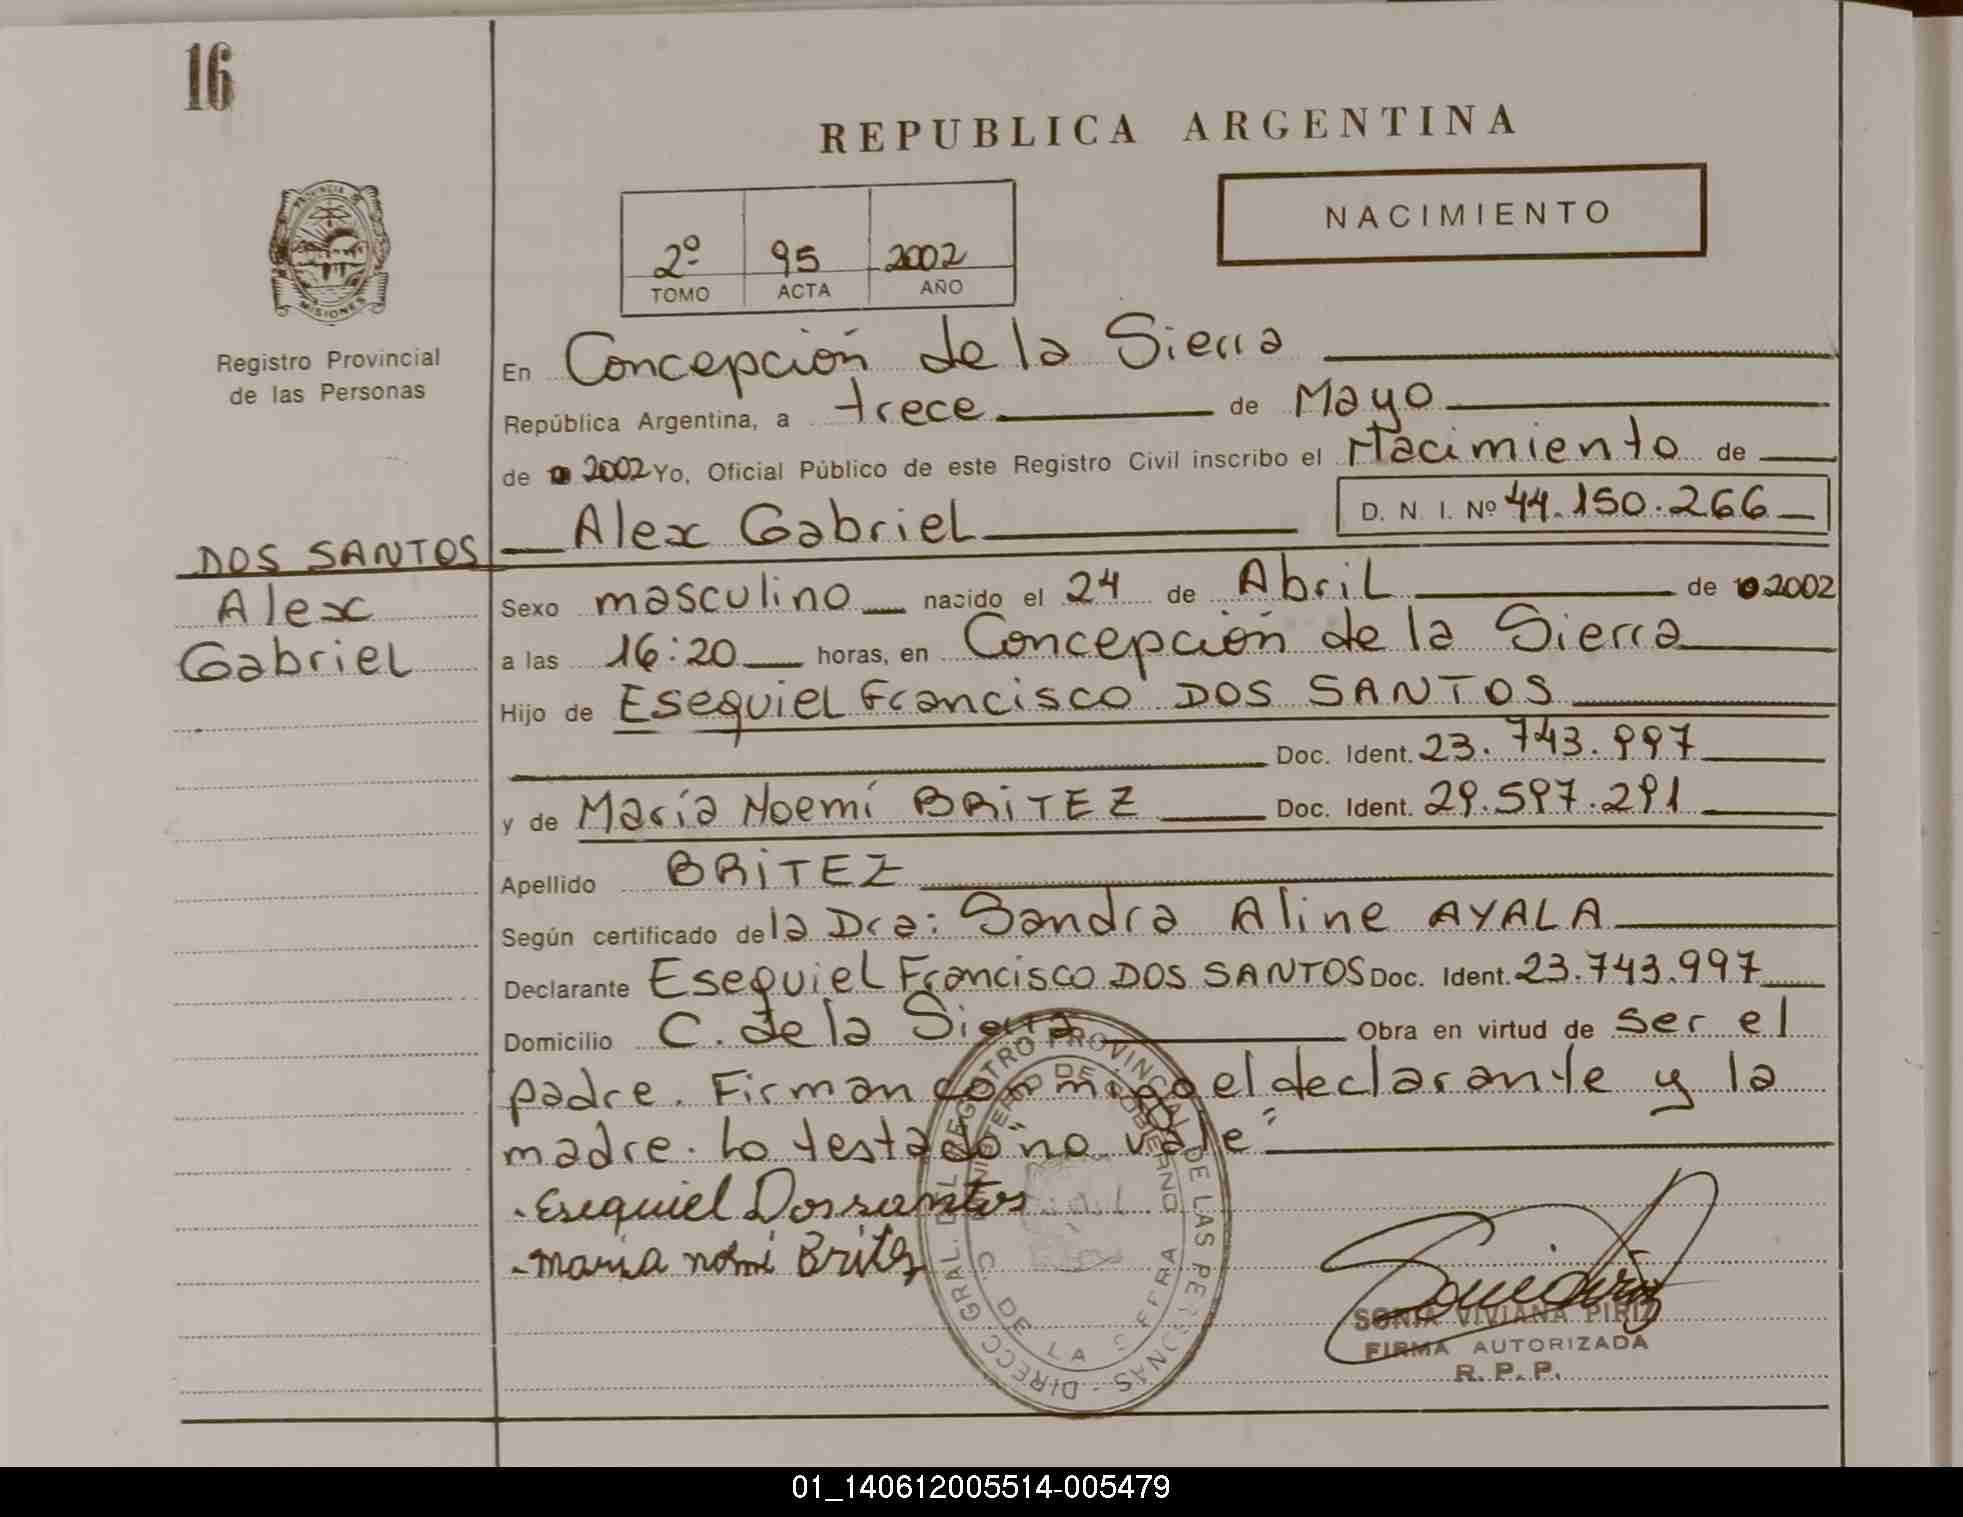 16
REPUBLICA ARGENTINA
NACIMIENTO
2º 95 2002
TOMO ACTA AÑO
PROVINCIA DE MISIONES
Registro Provincial
de las Personas
En Concepción de la Sierra
República Argentina, a trece de Mayo
de 2002 Yo, Oficial Público de este Registro Civil inscribo el Nacimiento de
Alex Gabriel D. N. I. Nº 44.150.266
DOS SANTOS
Alex
Gabriel
Sexo masculino nacido el 24 de Abril de 2002
a las 16:20 horas, en Concepción de la Sierra
Hijo de Esequiel Francisco DOS SANTOS
Doc. Ident. 23.743.997
y de María Noemí BRITEZ Doc. Ident. 29.597.291
Apellido BRITEZ
Según certificado de la Dra: Sandra Aline AYALA
Declarante Esequiel Francisco DOS SANTOS Doc. Ident. 23.743.997
Domicilio C. de la Sierra Obra en virtud de ser el
padre. Firman conmigo el declarante y la
madre. Lo testado "no vale"
Esequiel Dossantos
maria nomi Britez
DIRECC GRAL. DEL REGISTRO PROVINCIAL DE LAS PERSONAS
MINISTERIO DE GOBIERNO
C. DE LA SIERRA
SONIA VIVIANA PIRIZ
FIRMA AUTORIZADA
R. P. P.
01_140612005514-005479